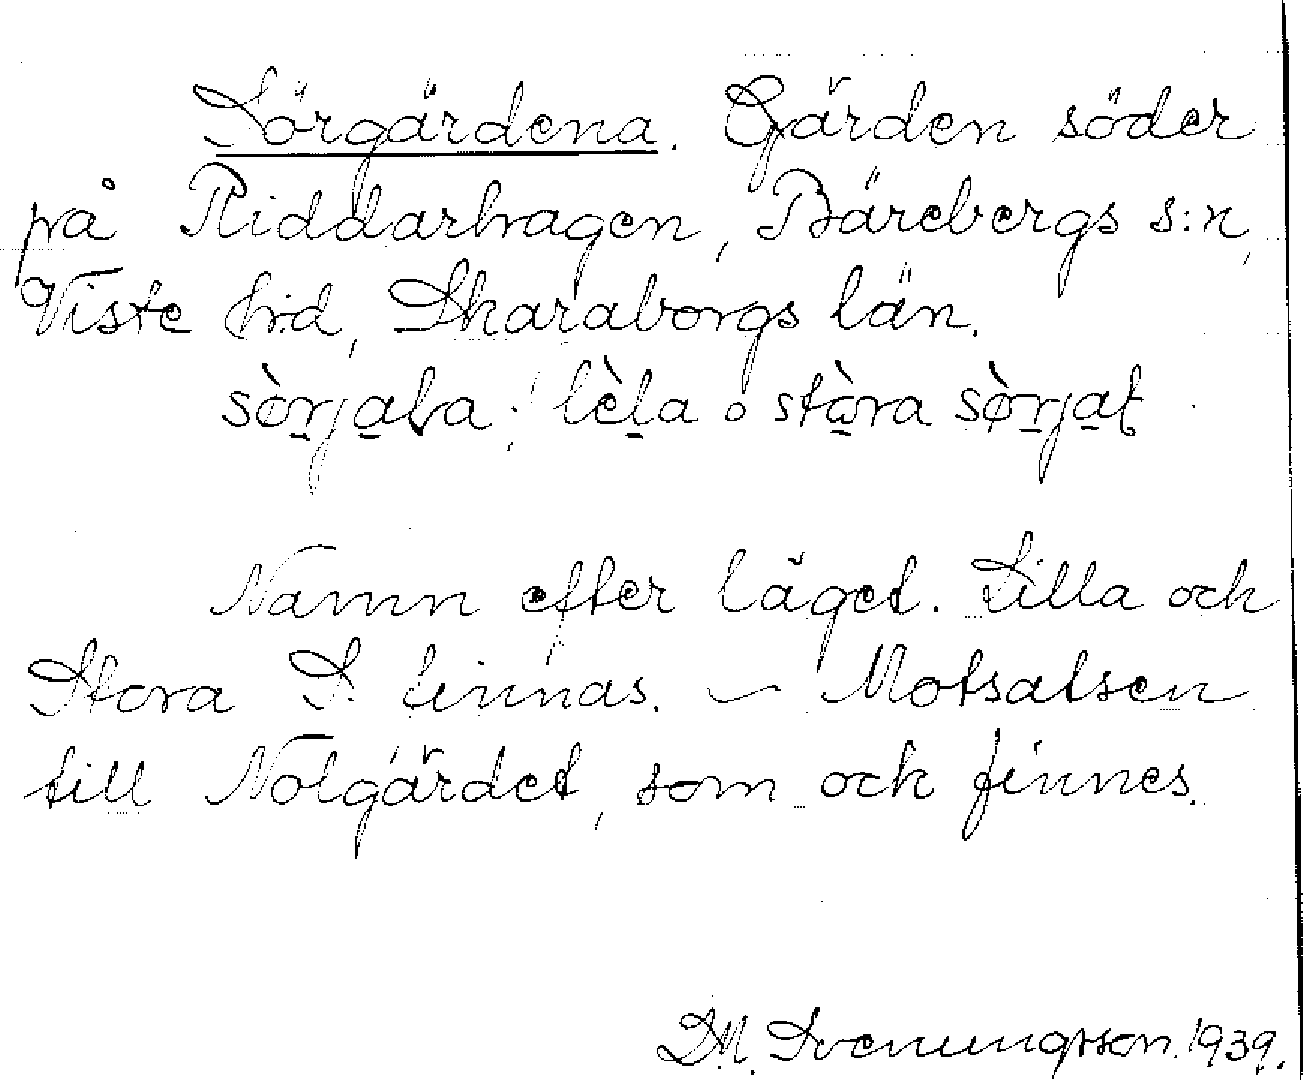 Sörgärdena. Gärden söder
på Riddarhagen, Bärebergs s:n,
Viste hd, Skaraborgs län.
lèla o stòra
Namn efter läget. Lilla och
Stora S. finnas. – Motsatsen
till Nolgärdet, som ock finnes.
D.M. Svenungsson. 1939.